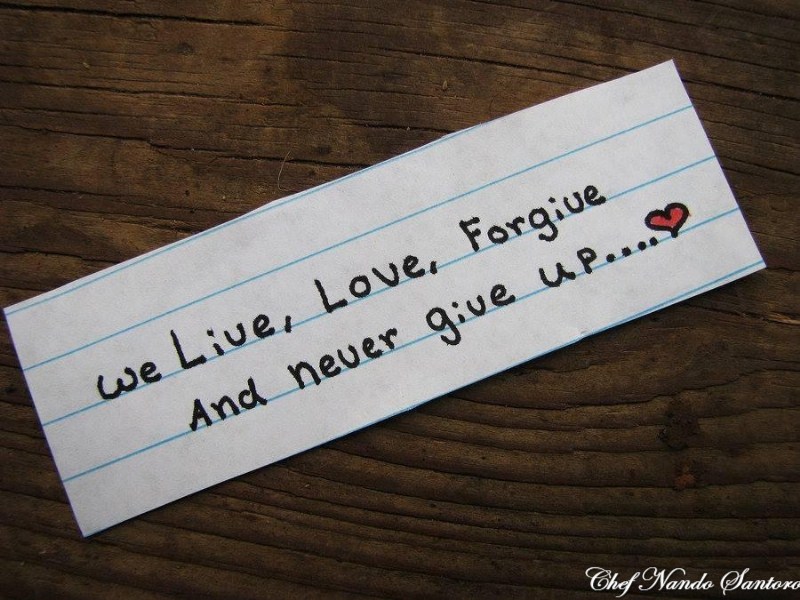 we Live, Love, Forgive
And never give up....
Chef Nando Santoro